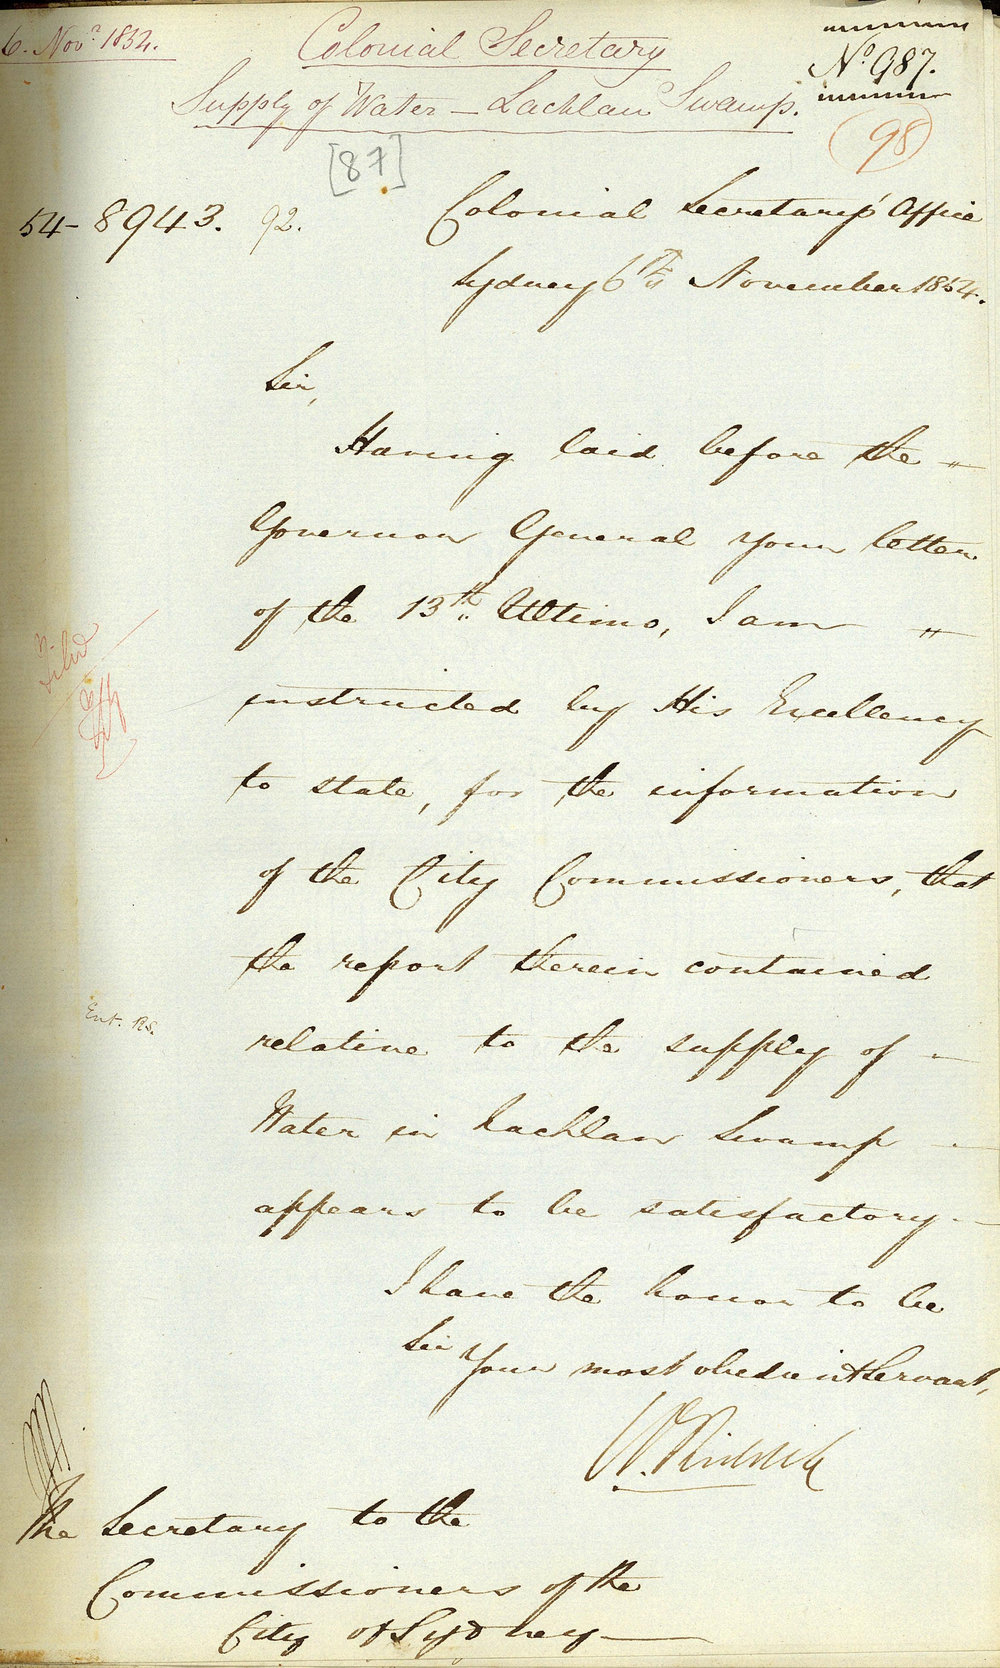 6. Novr. 1854.
Colonial Secretary
Supply of Water – Lachlan Swamp.
No. 987.
98
[87]
54-8943. 92.
Colonial Secretary's Office
Sydney 6th November 1854.
Sir,
Having laid before the "
Governor General your letter
of the 13th Ultimo, I am "
instructed by His Excellency
to state, for the information
of the City Commissioners, that
the report therein contained
relative to the supply of –
Water in Lachlan Swamp –
appears to be satisfactory. –
I have the honor to be
Sir
Your most obedient Servant,
W. Riddell
Filed
Ent. RS.
The Secretary to the
Commissioners of the
City of Sydney –